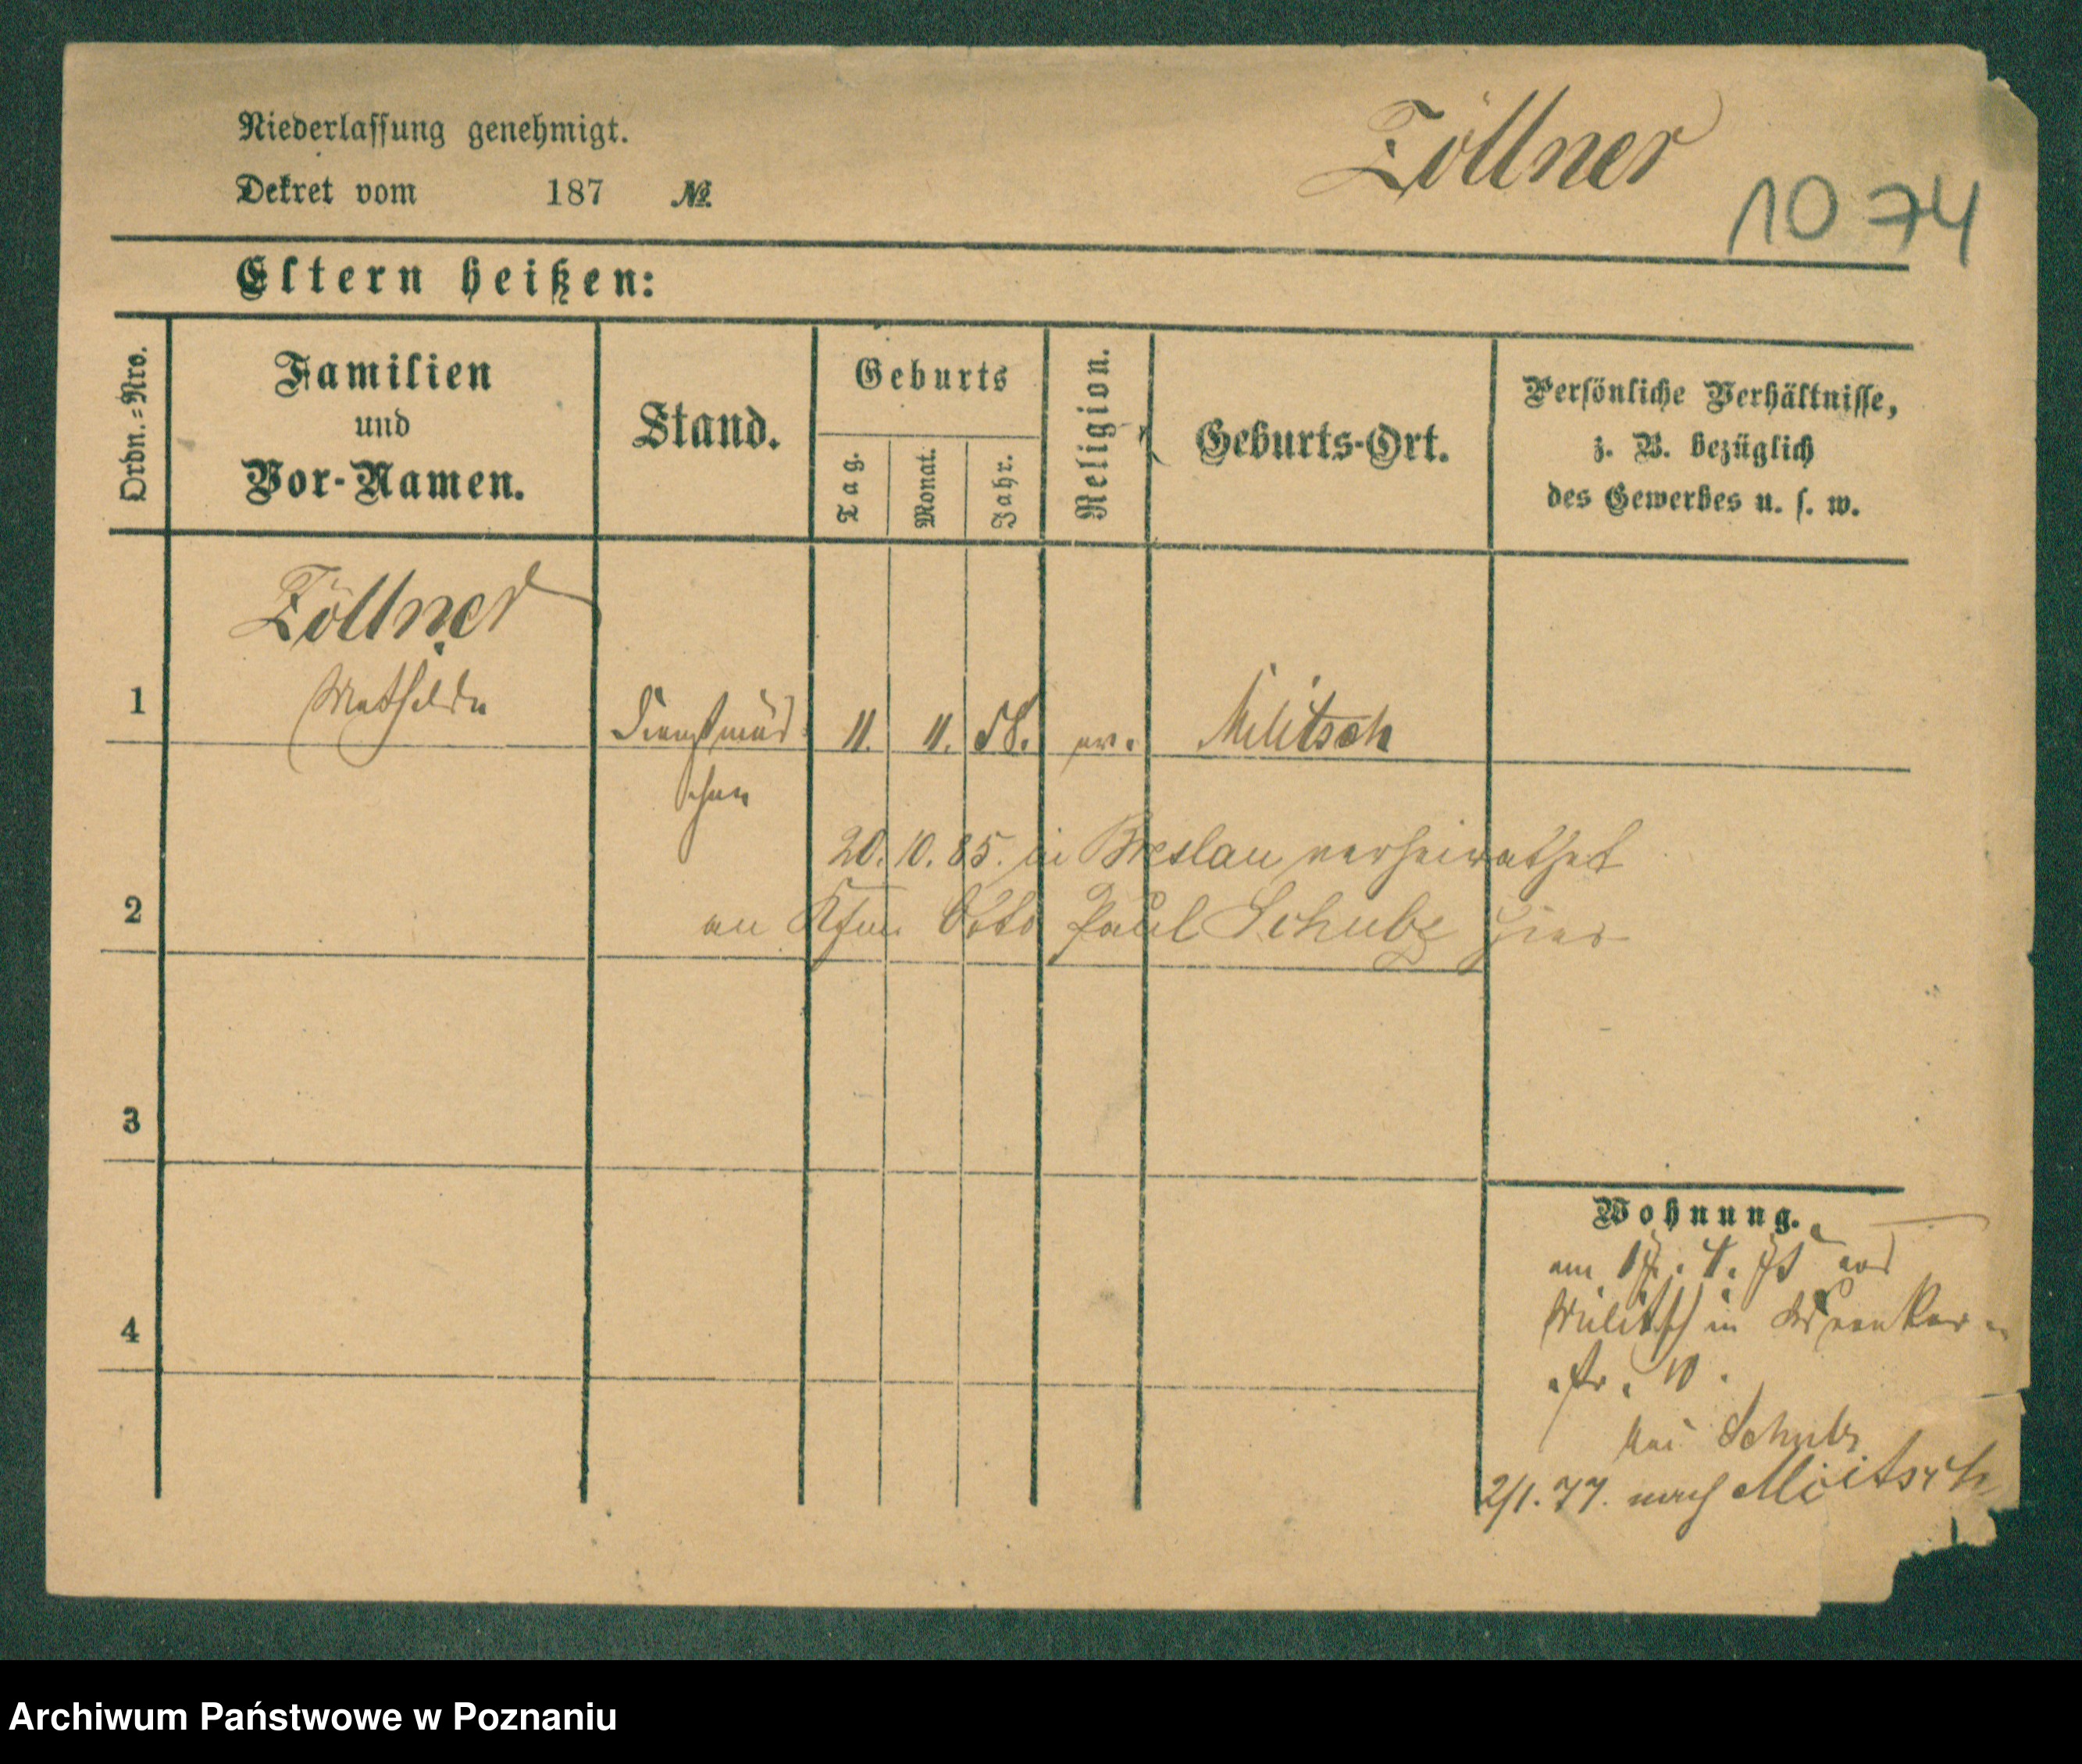 Niederlassung genehmigt.
Dekret vom 187 №
Zöllner
1074
Eltern heißen:
Ordn.=Nro.
Familien
und
Vor-Namen.
Stand.
Geburts
Tag.
Monat.
Jahr.
Religion.
Geburts-Ort.
Persönliche Verhältnisse,
z. B. bezüglich
des Gewerbes u. s. w.
Zöllner
1 Mathilde Dienstmäd= 11. 11. 58. ev. Militsch
chen
20. 10. 85. in Breslau verheirathet
2 an Kfm. Otto Paul Schulz hier
3
4
Wohnung.
am 17. 4. aus
Militsch in
str. 10.
bei Schulz
2/1. 77. nach Militsch
Archiwum Państwowe w Poznaniu